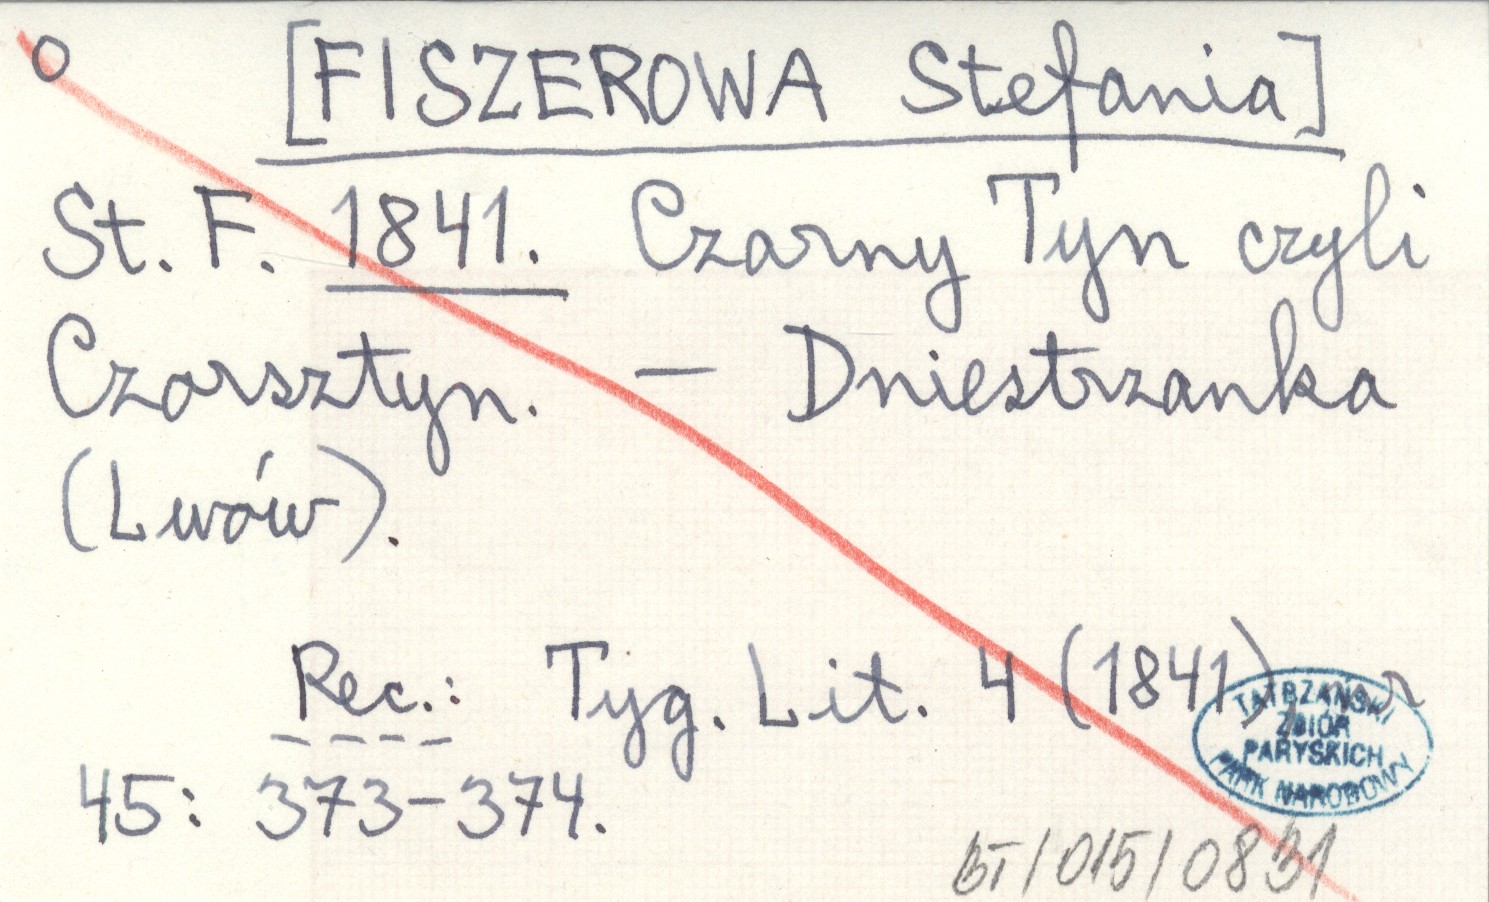 [FISZEROWA Stefania]
St. F. 1841. Czarny Tyn czyli
Czorsztyn. – Dniestrzanka
(Lwów).
Rec.: Tyg. Lit. 4 (1841), nr
45: 373–374.
TATRZAŃSKI
ZBIÓR
PARYSKICH
PARK NARODOWY
BT/015/0831